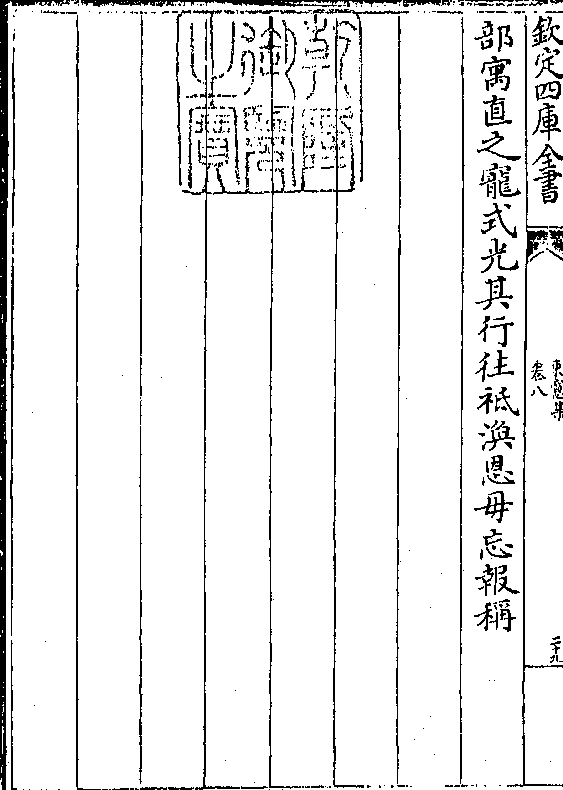 欽定四庫全書
卷八
二十九
部寓直之寵式光其行往祗渙恩毋忘報稱
乾隆御覽之寶